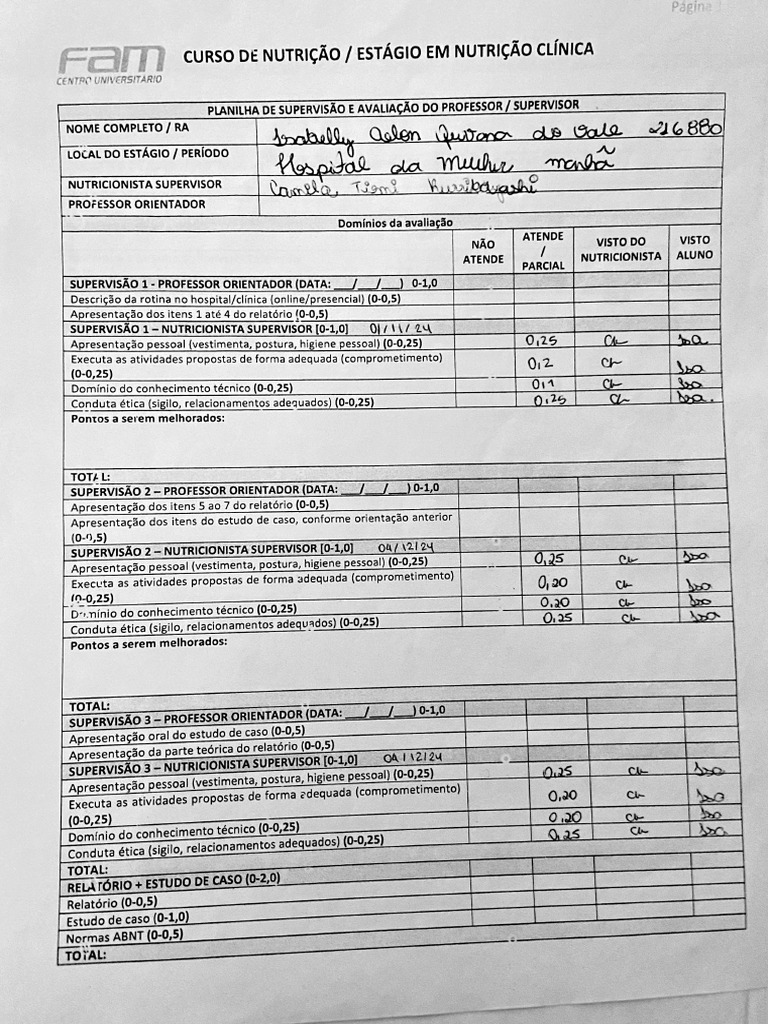 Página
fam
CENTRO UNIVERSITÁRIO
CURSO DE NUTRIÇÃO / ESTÁGIO EM NUTRIÇÃO CLÍNICA
PLANILHA DE SUPERVISÃO E AVALIAÇÃO DO PROFESSOR / SUPERVISOR
NOME COMPLETO / RA Isabelly do Vale 216880
LOCAL DO ESTÁGIO / PERÍODO Hospital da Mulher manhã
NUTRICIONISTA SUPERVISOR Camila Tiemi Kurribayashi
PROFESSOR ORIENTADOR
Domínios da avaliação
NÃO ATENDE
ATENDE / PARCIAL
VISTO DO NUTRICIONISTA
VISTO ALUNO
SUPERVISÃO 1 - PROFESSOR ORIENTADOR (DATA: ___/___/___) 0-1,0
Descrição da rotina no hospital/clínica (online/presencial) (0-0,5)
Apresentação dos itens 1 até 4 do relatório (0-0,5)
SUPERVISÃO 1 – NUTRICIONISTA SUPERVISOR [0-1,0] 01/11/24
Apresentação pessoal (vestimenta, postura, higiene pessoal) (0-0,25) 0,25
Executa as atividades propostas de forma adequada (comprometimento) 0,2
(0-0,25)
Domínio do conhecimento técnico (0-0,25) 0,1
Conduta ética (sigilo, relacionamentos adequados) (0-0,25) 0,25
Pontos a serem melhorados:
TOTAL:
SUPERVISÃO 2 – PROFESSOR ORIENTADOR (DATA: ___/___/___) 0-1,0
Apresentação dos itens 5 ao 7 do relatório (0-0,5)
Apresentação dos itens do estudo de caso, conforme orientação anterior
(0-0,5)
SUPERVISÃO 2 – NUTRICIONISTA SUPERVISOR [0-1,0] 04/12/24
Apresentação pessoal (vestimenta, postura, higiene pessoal) (0-0,25) 0,25
Executa as atividades propostas de forma adequada (comprometimento) 0,20
(0-0,25)
Domínio do conhecimento técnico (0-0,25) 0,20
Conduta ética (sigilo, relacionamentos adequados) (0-0,25) 0,25
Pontos a serem melhorados:
TOTAL:
SUPERVISÃO 3 – PROFESSOR ORIENTADOR (DATA: ___/___/___) 0-1,0
Apresentação oral do estudo de caso (0-0,5)
Apresentação da parte teórica do relatório (0-0,5)
SUPERVISÃO 3 – NUTRICIONISTA SUPERVISOR [0-1,0] 04/12/24
Apresentação pessoal (vestimenta, postura, higiene pessoal) (0-0,25) 0,25
Executa as atividades propostas de forma adequada (comprometimento) 0,20
(0-0,25)
Domínio do conhecimento técnico (0-0,25) 0,20
Conduta ética (sigilo, relacionamentos adequados) (0-0,25) 0,25
TOTAL:
RELATÓRIO + ESTUDO DE CASO (0-2,0)
Relatório (0-0,5)
Estudo de caso (0-1,0)
Normas ABNT (0-0,5)
TOTAL: